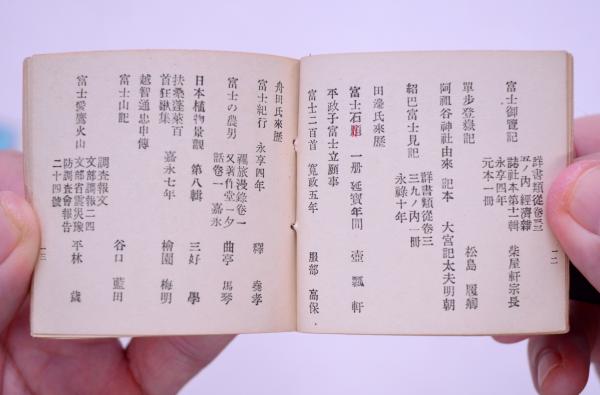 富士御覽記
群書類從卷三三
五ノ內 經濟雜
誌社本第十二輯
永享四年
元本一冊
柴屋軒宗長
單步登嶽記
松島 履卿
阿祖谷神社由來 記本 大宮記太夫明朝
紹巴富士見記
群書類從卷三
三九ノ內一冊
永祿十年
田邊氏來歷
富士石 一册 延寶年間 壺瓢軒
平政子富士立願事
富士二百首 寬政五年 服部 高保
一二
舟田氏來歷
富士紀行 永享四年 釋 堯孝
富士の農男
羇旅漫錄卷一
又著作堂一夕
話卷一 嘉永
曲亭 馬琴
日本植物景觀 第八輯 三好 學
扶桑蓬萊百
首狂歌集
嘉永七年 檜園 梅明
越智通忠申傳
富士山記 谷口 藍田
富士愛鷹火山
調查報文
文部調報二四
文部省震災豫
防調查會報告
二十四號
平林 武
一三